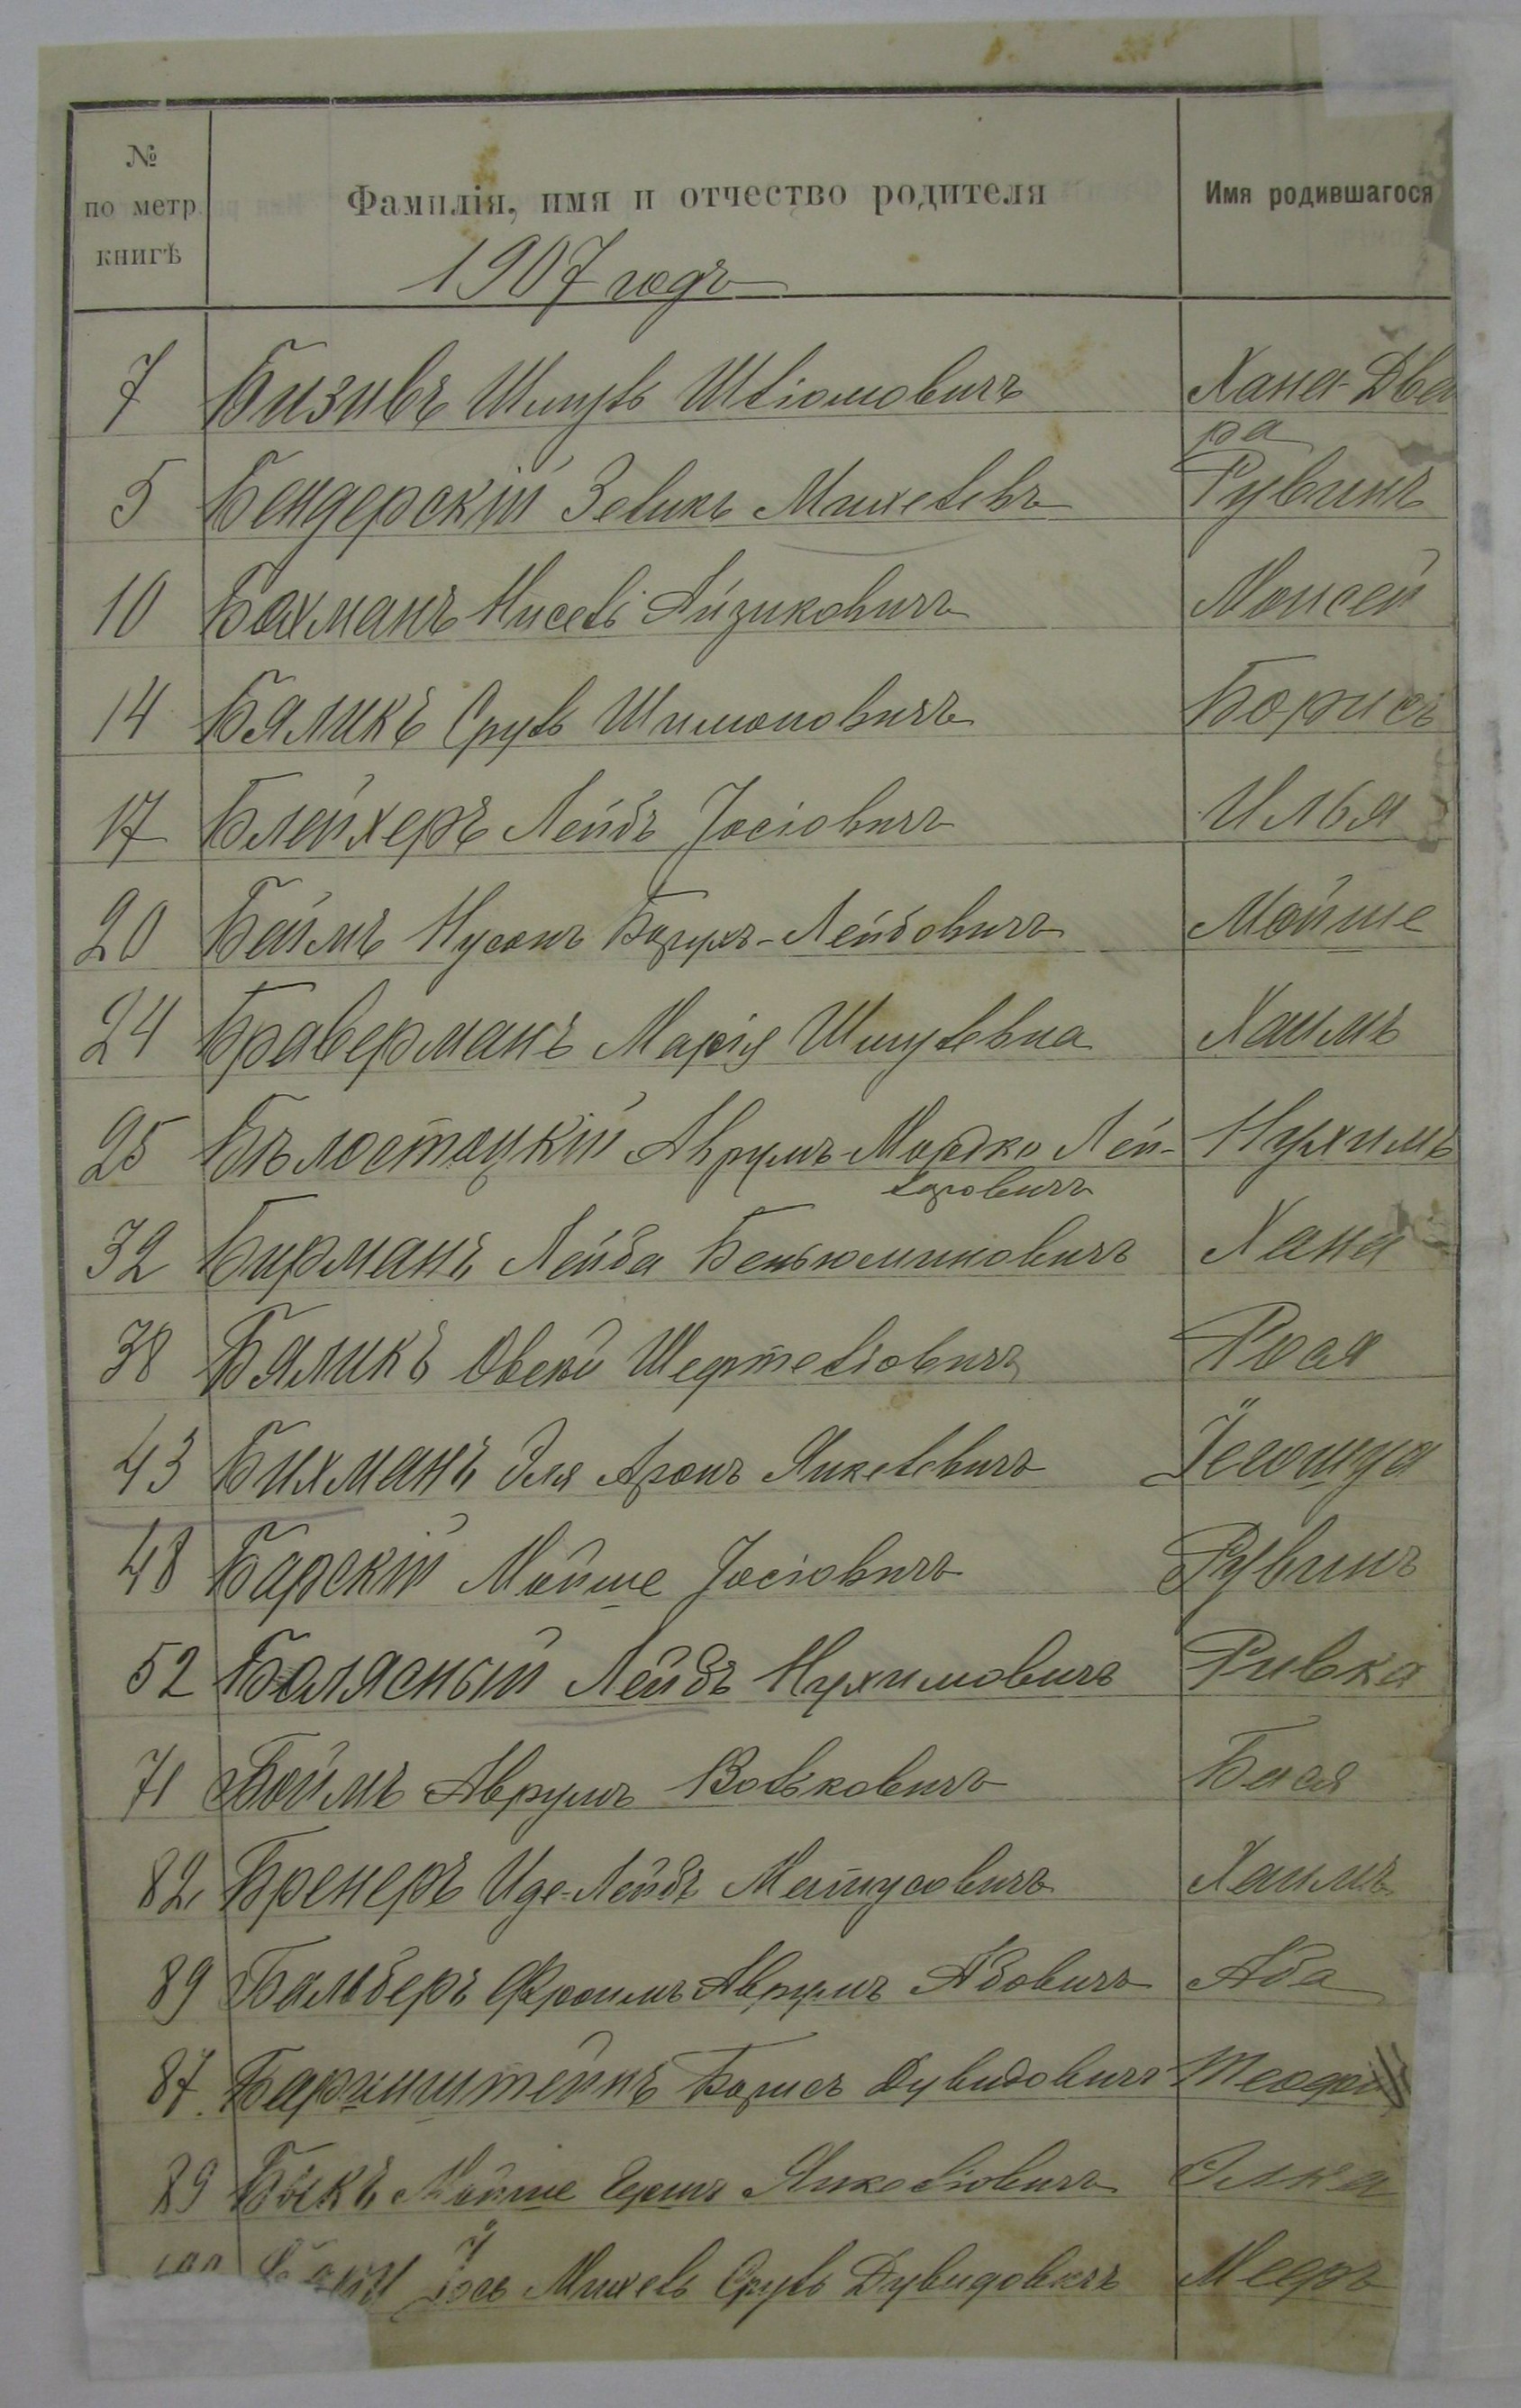 № по метр. книгѣ Фамилія, имя и отчество родителя Имя родившагося
1907 годъ
7 Бизивъ Шмуль Шліомовичъ Хана-Двей
ра
5 Бендерскій Зеликъ Михелевъ Рувинъ
10 Бахманъ Нисель Айзиковичъ Моисей
14 Бяликъ Сруль Шимоновичъ Борисъ
17 Блейхеръ Лейбъ Іосіовичъ Илья
20 Беймъ Нусонъ Борухъ-Лейбовичъ Мойше
24 Браверманъ Марія Шмулевна Хаимъ
25 Бѣлостоцкій Аврумъ-Мордко Лей- Нухимъ
зоровичъ
32 Бирманъ Лейба Беньюминовичъ Хана
38 Бяликъ Овсей Шефтеліовичъ Рося
43 Бихманъ Эля Аронъ Янкелевичъ Іегошуа
48 Барскій Мойше Іосіовичъ Рувинъ
52 Балясный Лейбъ Нухимовичъ Ривка
71 Боймъ Аврумъ Волковичъ Бася
82 Бренеръ Иде-Лейбъ Матусовичъ Хаимъ
89 Бальберъ Фроимъ Аврумъ Абовичъ Аба
87. Баренштейнъ Борисъ Дувидовичъ Теодоръ
89 Быкъ Мойше Гершъ Янкеліовичъ Элка
Іось Михель Сруль Дувидовичъ Мееръ